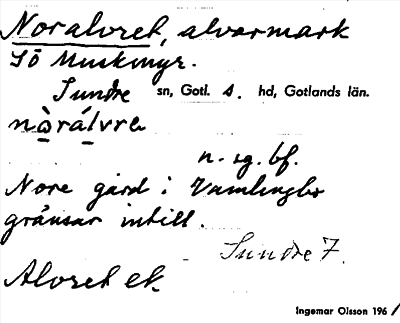 Noralvret, alvarmark
SÖ Muskmyr.
Sundre sn, Gotl. s. hd, Gotlands län.
nòrálvre
n. sg. bf.
Nore gård i Vamlingbo
gränsar intill.
Sundre 7.
Alvret ek.
Ingemar Olsson 1961